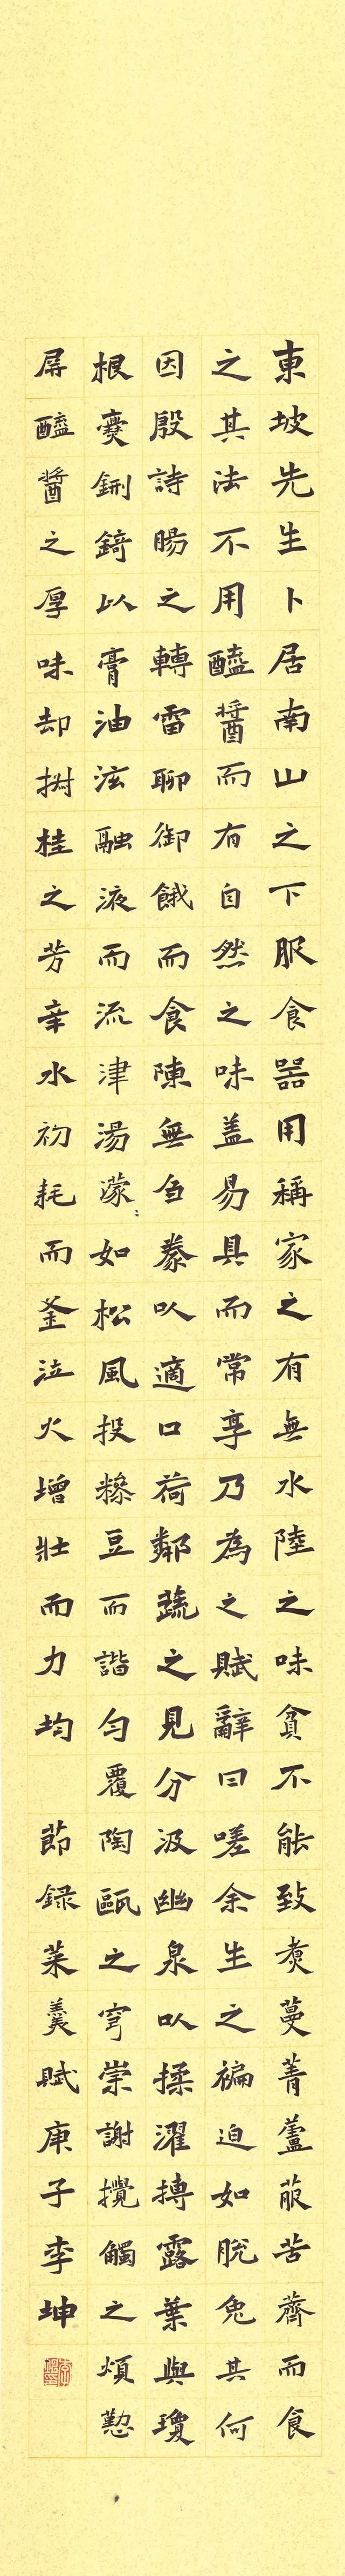 東坡先生卜居南山之下服食器用稱家之有無水陸之味貧不能致煑蔓菁蘆菔苦薺而食
之其法不用醯醬而有自然之味盖易具而常享乃為之賦辭曰嗟余生之褊迫如脫兔其何
因殷詩腸之轉雷聊御餓而食陳無芻豢以適口荷鄰蔬之見分汲幽泉以揉濯摶露葉與瓊
根爨鉶錡以膏油泫融液而流津湯濛〻如松風投糝豆而諧勻覆陶甌之穹崇謝攪觸之煩懃
屏醯醬之厚味却椒桂之芳辛水初耗而釜泣火增壯而力均 節録菜羹賦庚子李坤